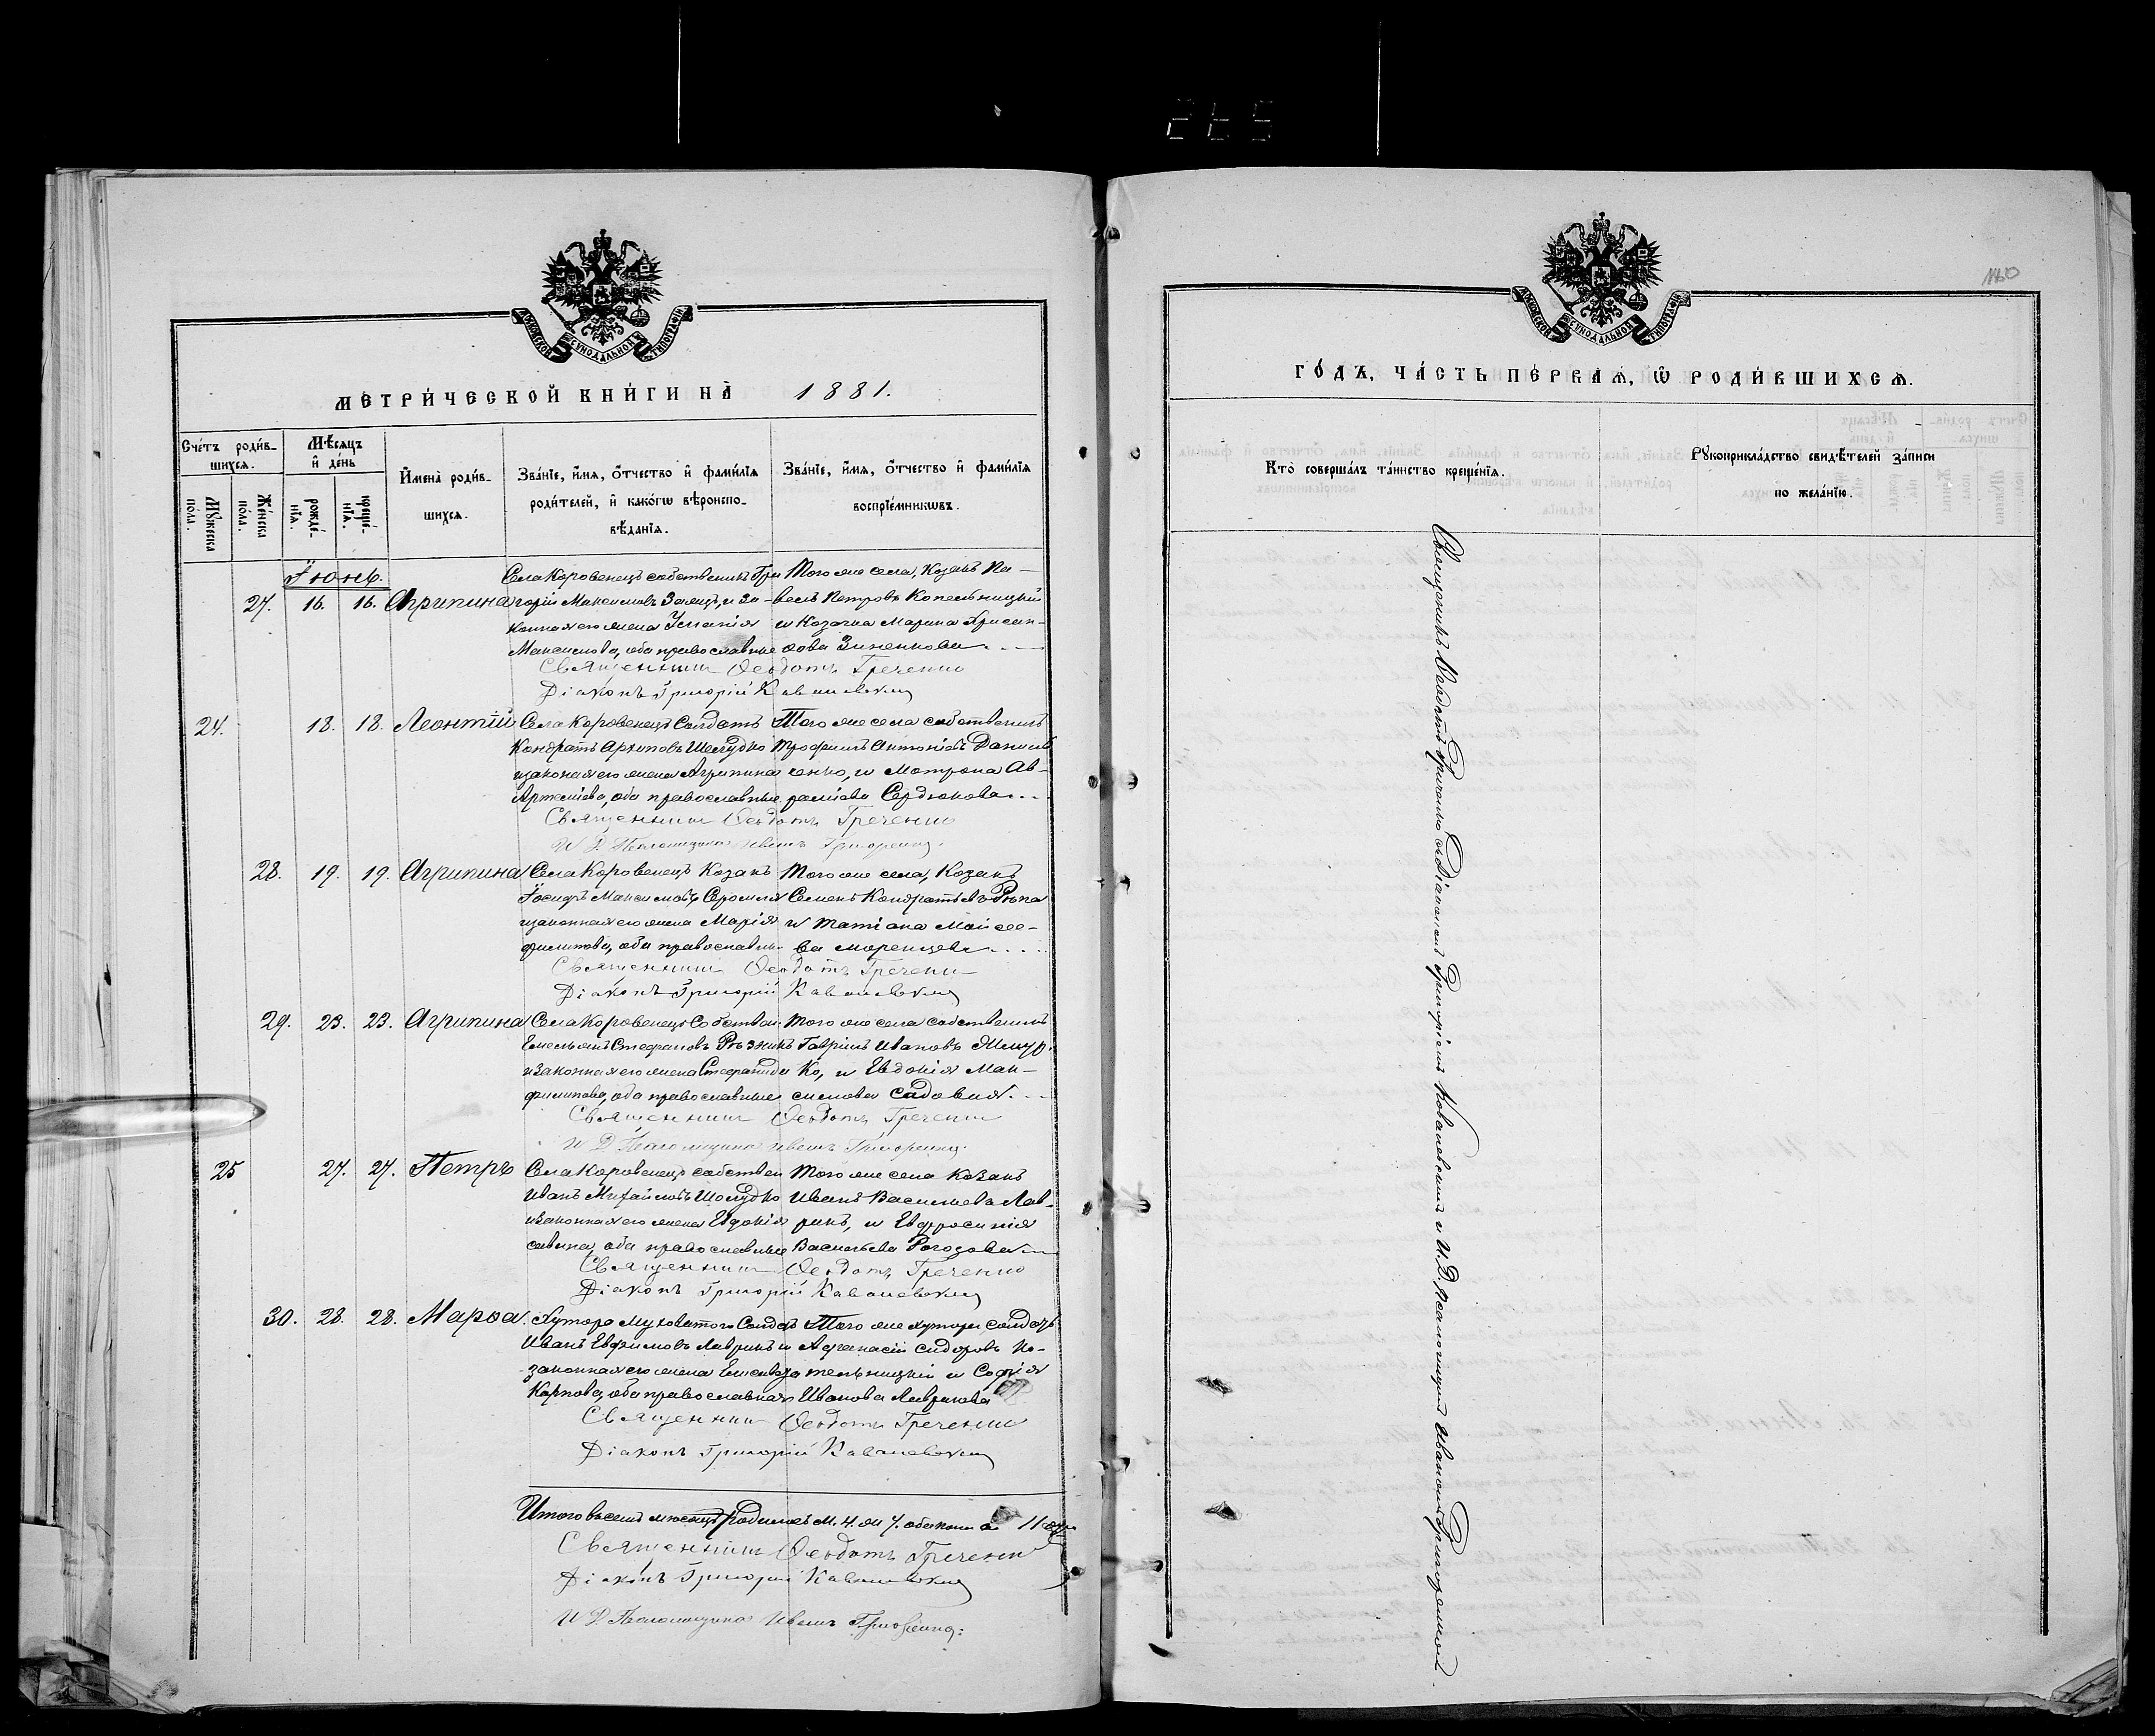 265
МОСКОВСКОЙ СѴНОДАЛЬНОЙ ТИПОГРАФІИ
МЕТРИ́ЧЕСКОЙ КНИ́ГИ НА̀ 1881.
Сче́тъ роди́в-
шихсѧ.
Мѣ́сѧцъ
и҆ де́нь
Мꙋ́жеска
по́ла.
Же́нска
по́ла.
рожде́-
нїѧ.
креще́-
нїѧ.
И҆мена̀ роди́в-
шихсѧ.
Зва́нїе, и҆́мѧ, ѻ҆́тчество и҆ фами́лїѧ
роди́телей, и҆ како́гѡ вѣроиспо-
вѣ́данїѧ.
Зва́нїе, и҆́мѧ, ѻ҆́тчество и҆ фами́лїѧ
воспрїе́мникѡвъ.
Іюнь.
27. 16. 16. Агрипина
Села Коровенецъ собственикъ Гри
горій Максимовъ Заяцъ, и за-
конная его жена Уліанія
Максимова, оба православные
Того же села, Козакъ Па-
велъ Петровъ Котельницкій
и Козачка Марина Хрисан-
Священникъ Ѳеодотъ Греченко
Діаконъ Григорій Кавалевскій
24. 18. 18. Леонтій
Села Коровенецъ Солдатъ
Кондратъ Архиповъ Шелудко
изаконая его жена Агрипина
Артеміева, оба православные
Того же села собственикъ
Трофимъ Антоніевъ Данил
ченко, и Мотрона Ав-
раміева Сердюкова
Священникъ Ѳеодотъ Греченко
И Д Псаломщика Иванъ Григоренко
28. 19. 19. Агрипина
Села Коровенецъ Козакъ
Іосифъ Максимовъ
изаконная его жена Марія
филипова, оба православн
Того же села, Козакъ
Семенъ Кондратьевъ Рѣпа
и Татіана Мойсее-
ва
Священникъ Ѳеодотъ Гречен
Діаконъ Григорій Кавалевскій
29. 23. 23. Агрипина
Села Коровенецъ Собствен
Емельянъ Стефановъ Рѣзникъ
изаконная его жена Стефанида
филипова, оба православные
Того же села собственикъ
Гавріилъ Ивановъ
ко, и Евдокія Мак-
симова Садовая
Священникъ Ѳеодотъ Гречен
И Д Псаломщика Иванъ Григоренко
25 27. 27. Петръ
Села Коровенецъ собствен
Иванъ Михайловъ Шолудко
изаконная его жена Евдокія
савина, оба православные
Того же села Козакъ
Иванъ Васильевъ Лав-
рикъ, и Евфросинія
Васильева Рогозова
Священникъ Ѳеодотъ Греченко
Діаконъ Григорій Кавалевскій
30. 28. 28. Марѳа.
Хутора Солдатъ
Иванъ Евфимовъ Лаврикъ и
законная его жена Елисавета
Карпова, оба православная
Того же хутора солдатъ
Афанасій Сидоровъ Ко-
тельницкій и Софія
Иванова Лаврикова
Священникъ Ѳеодотъ Греченко
Діаконъ Григорій Кавалевскій
Итого всемъ месяцѣ родилось М. 4. ж 7. обоего пола 11
Священникъ Ѳеодотъ Гречен
Діаконъ Григорій Кавалевскій
И Д Псаломщика Иванъ Григоренко
МОСКОВСКОЙ СѴНОДАЛЬНОЙ ТИПОГРАФІИ
ГО́ДЪ, ЧА́СТЬ ПЕ́РВАѦ, Ѽ РОДИ́ВШИХСѦ.
Кто̀ соверша́лъ та́инство креще́нїѧ.
Рꙋкоприкла́дство свидѣ́телей за́писи
по жела́нїю.
Священикъ Ѳеодотъ Греченко съ Діакономъ Григоріемъ Ковалевскимъ и И. Д. Псаломщика Иваномъ Григоренкомъ